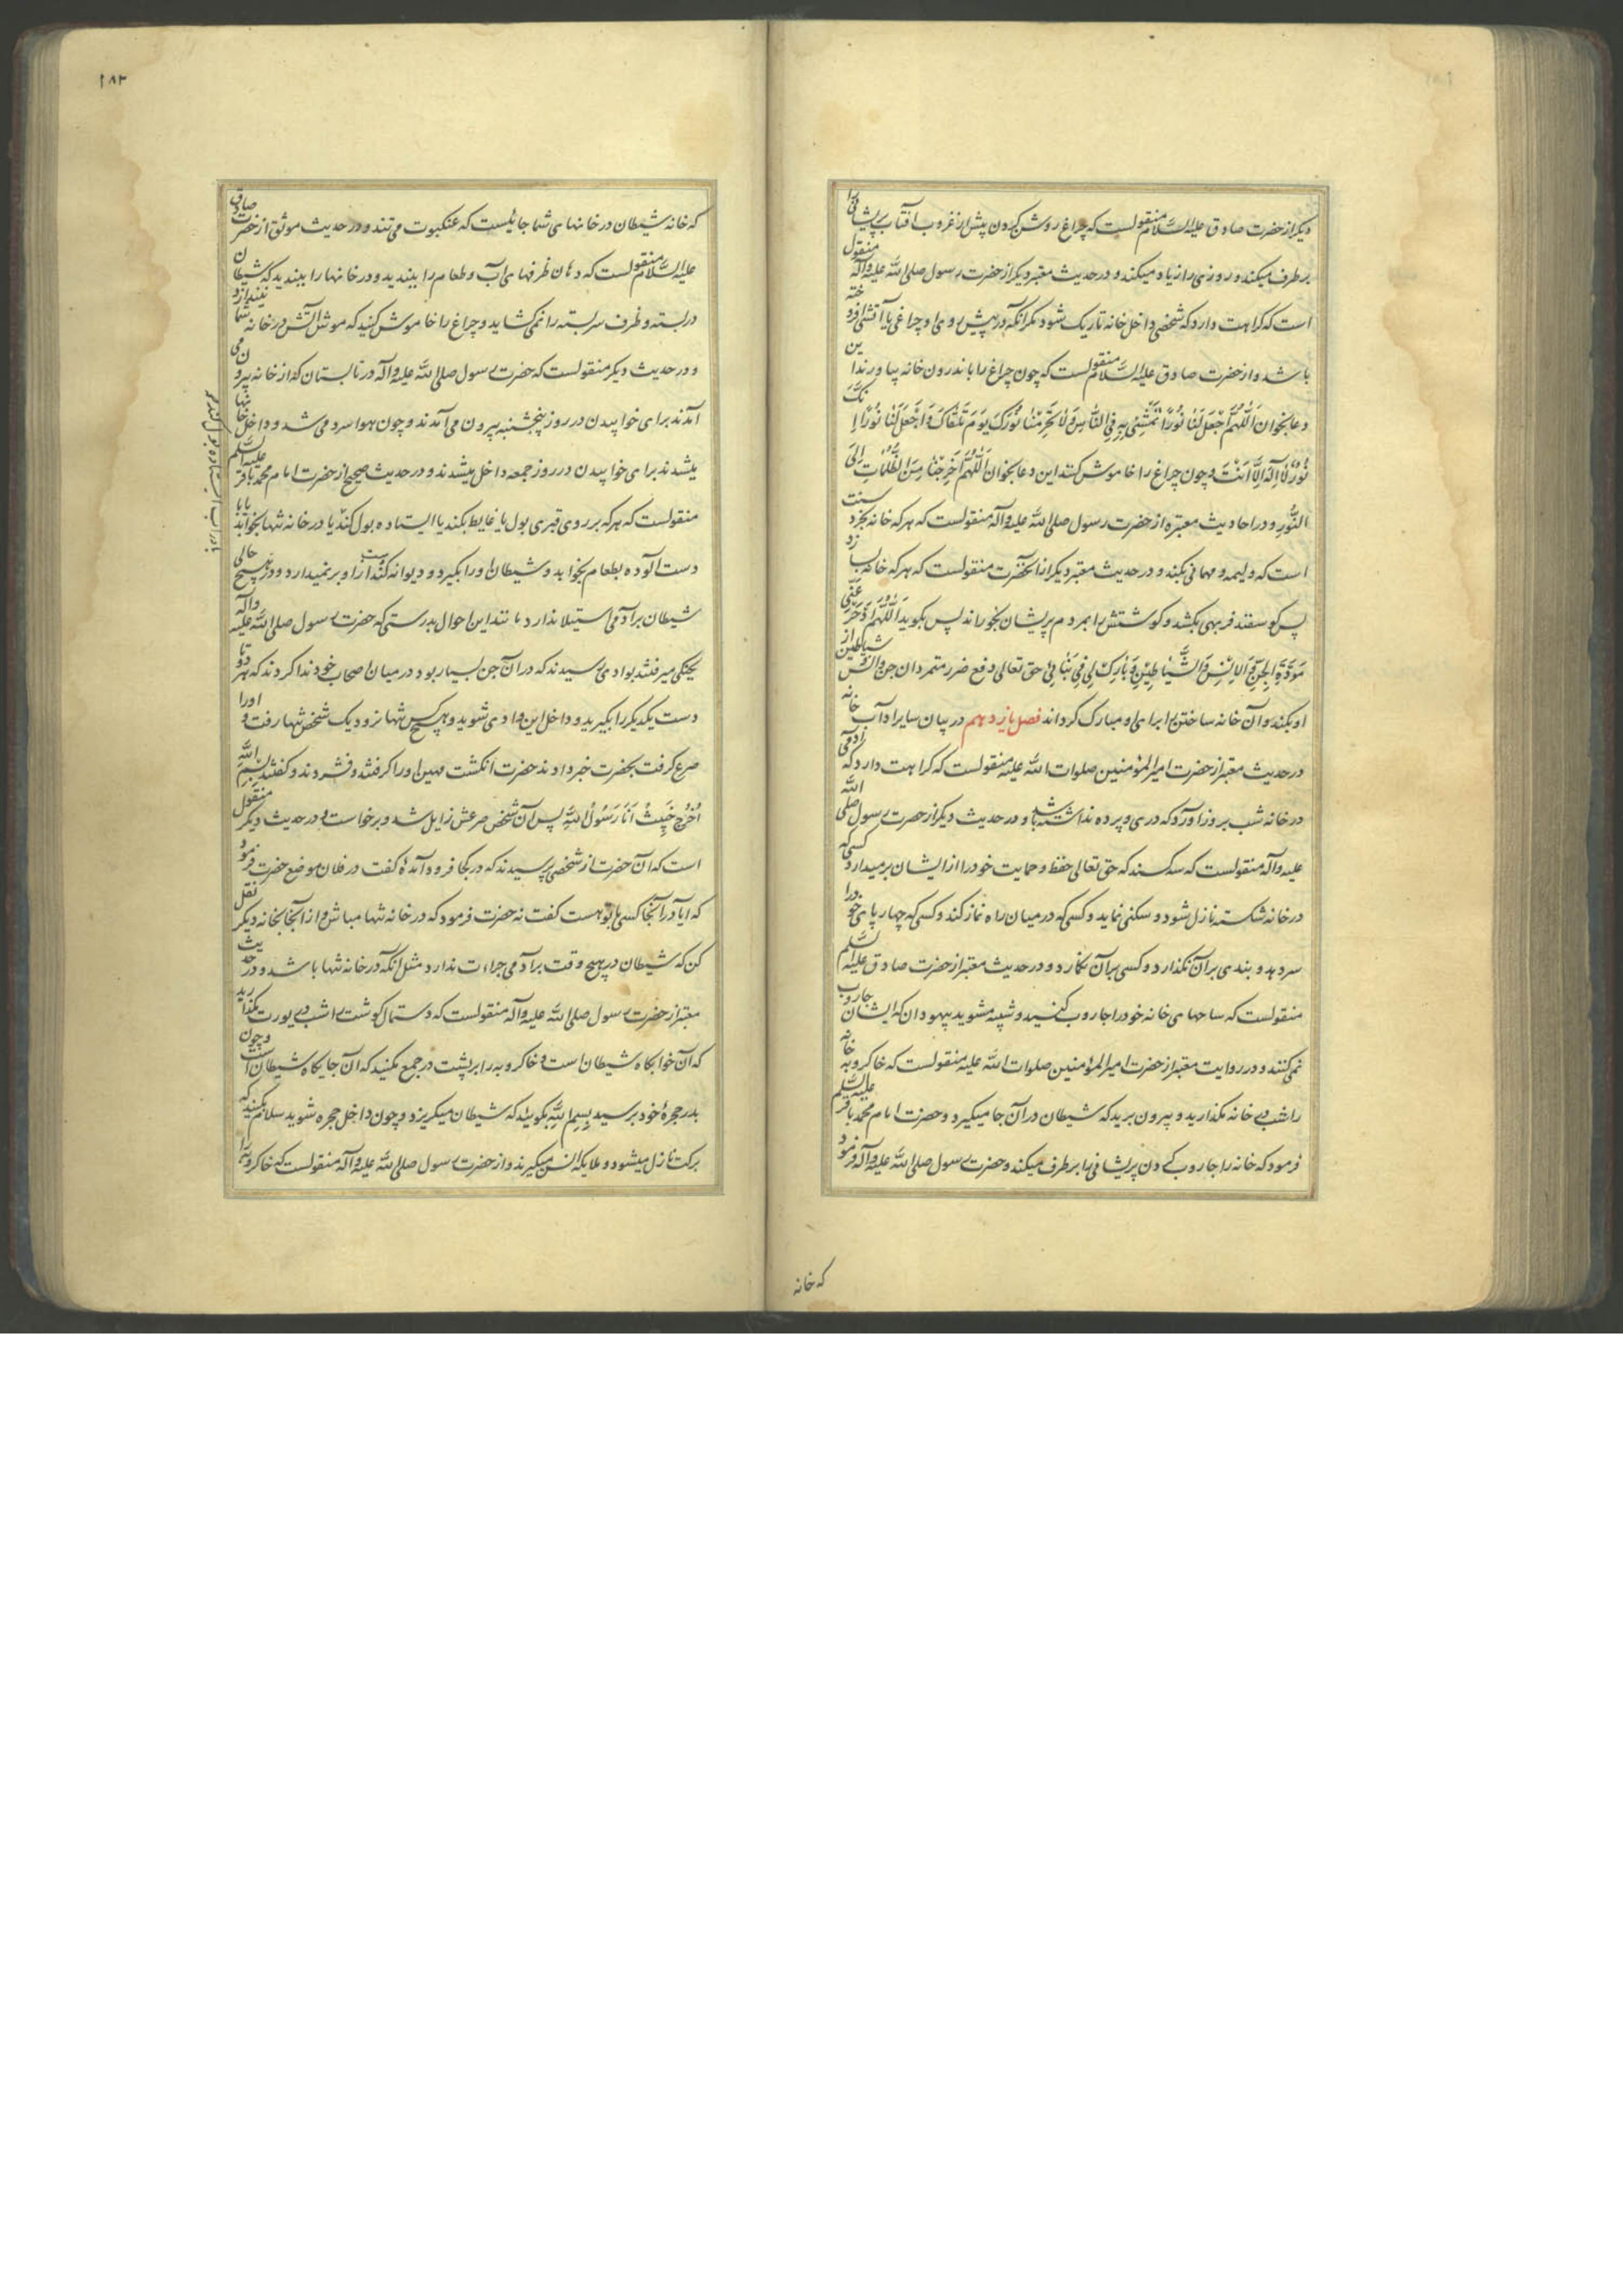 دیگر از حضرت صادق علیه السّلام منقولست که چراغ روشن کردن پیش از غروب آفتاب پریشانی را
برطرف میکند و روزی را زیاد میکند و در حدیث معتبر دیگر از حضرت رسول صلی الله علیه وآله منقول
است که کراهت دارد که شخصی داخل خانه تاریک شود مگر آنکه در پیش روی او چراغی یا آتشی افروخته
باشد و از حضرت صادق علیه السّلام منقولست که چون چراغ را باندرون خانه بیاورند این
دعا بخوان اَللّٰهُمَّ اجْعَلْ لَنا نُورًا نَمْشِی بِهِ فِی النّاسِ وَلا تَحْرِمْنا نُورَکَ یَوْمَ نَلْقاکَ وَاجْعَلْ لَنا نُورًا اِنَّکَ
نُورٌ لا اِلهَ اِلاّ اَنْتَ و چون چراغ را خاموش کنند این دعا بخوان اَللّٰهُمَّ اَخْرِجْنا مِنَ الظُّلُماتِ اِلَی
النُّورِ و در احادیث معتبره از حضرت رسول صلی الله علیه وآله منقولست که هر که خانه بخرد سنت
است که ولیمه و مهمانی بکند و در حدیث معتبر دیگر از آنحضرت منقولست که هر که خانه بسازد
پس گوسفند فربهی بکشد و گوشتش را بمردم پریشان بخوراند پس بگوید اَللّٰهُمَّ ادْحَرْ عَنّی
مَرَدَةَ الْجِنِّ وَالاِنْسِ وَالشَّیاطِینِ وَبارِکْ لِی فِی بِنائِی حق تعالی دفع ضرر متمردان جن و انس و شیاطین از
او بکند و آن خانه ساختن را برای او مبارک گرداند فصل یازدهم در بیان سایر آداب خانه
در حدیث معتبر از حضرت امیر المؤمنین صلوات الله علیه منقولست که کراهت دارد که آدمی
در خانه شب بروز آورد که دری و پرده نداشته باشد و در حدیث دیگر از حضرت رسول صلی الله
علیه وآله منقولست که سه کسند که حق تعالی حفظ و حمایت خود را از ایشان برمیدارد کسی که
در خانه شکسته نازل شود و سکنی نماید و کسی که در میان راه نماز کند و کسی که چهارپای خود را
سر دهد و بندی بر آن نگذارد و کسی بر آن نگمارد و در حدیث معتبر از حضرت صادق علیه السلم
منقولست که ساحهای خانه خود را جاروب کنید و شبیه مشوید بیهودان که ایشان جاروب
نمی کنند و در روایت معتبر از حضرت امیر المؤمنین صلوات الله علیه منقولست که خاکروبه خانه
را شب در خانه مگذارید و بیرون برید که شیطان در آن جا میگیرد و حضرت امام محمد باقر علیه السلم
فرمود که خانه را جاروب کردن پریشانیها برطرف میکند و حضرت رسول صلی الله علیه وآله فرمود
که خانه
۱۸۲
که خانه شیطان در خانهای شما جائیست که عنکبوت می تند و در حدیث موثق از حضرت صادق
علیه السّلام منقولست که دهان ظرفهای آب و طعام را ببندید و در خانها را ببندید که شیطان
در بسته و ظرف سر بسته را نمی گشاید و چراغ را خاموش کنید که موش آتش در خانه شما نیندازد
و در حدیث دیگر منقولست که حضرت رسول صلی الله علیه وآله در تابستان که از خانه بیرون می
آمدند برای خوابیدن در روز پنجشنبه بیرون می آمدند و چون هوا سرد می شد و داخل خانها
میشدند برای خوابیدن در روز جمعه داخل میشدند و در حدیث صحیح از حضرت امام محمد باقر علیه السلم
منقولست که هر که بر روی قبری بول یا غایط بکند یا ایستاده بول کند یا در خانه تنها بخوابد یا با
دست آلوده بطعام بخوابد و شیطان او را بگیرد و دیوانه کند دست از او بر نمیدارد و در هیچ حالی
شیطان بر آدمی استیلا ندارد مانند این احوال بدرستی که حضرت رسول صلی الله علیه وآله
بجنگی میرفتند بوادی رسیدند که در آن جن بسیار بود در میان اصحاب خود ندا کردند که هر دو تا
دست یکدیگر را بگیرید و داخل این وادی شوید و هیچکس تنها نرود یک شخص تنها رفت و او را
صرع گرفت بحضرت خبر دادند حضرت انگشت مهین او را گرفتند و فشردند و گفتند بِسْمِ اللهِ
اُخْرُجْ خَبِیثُ اَنَا رَسُولُ اللهِ پس آن شخص صرعش زایل شد و برخواست و در حدیث دیگر منقول
است که آن حضرت از شخصی پرسیدند که در کجا فرود آمدهٔ گفت در فلان موضع حضرت فرمود
که ایا در آنجا کسی با تو هست گفت نه حضرت فرمود که در خانه تنها مباش و از آنجا بخانه دیگر نقل
کن که شیطان در هیچ وقت بر آدمی جراءت ندارد مثل آنکه در خانه تنها باشد و در حدیث
معتبر از حضرت رسول صلی الله علیه وآله منقولست که دستمال گوشت را شب در یورت مگذارید
که آن خوابگاه شیطان است و خاکروبه را بر پشت در جمع مکنید که آن جایگاه شیطان است و چون
بدر حجرهٔ خود برسید بِسْمِ اللهِ بگویید که شیطان میگریزد و چون داخل حجره شوید سلام بکنید که
برکت نازل میشود و ملایکه انس میگیرند و از حضرت رسول صلی الله علیه وآله منقولست که خاکروبه را